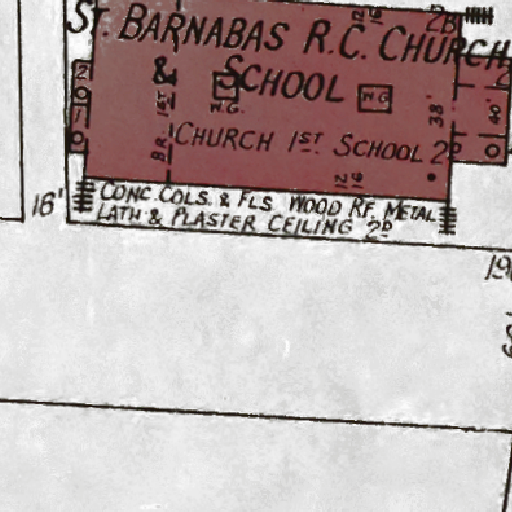 ST. BARNABAS R.C. CHURCH
& SCHOOL
W.G.
W.G.
BR. 1ST
CHURCH 1ST. SCHOOL 2D
38'
40'
2B
12
16
16'
CONC. COLS. & FLS. WOOD RF. METAL
LATH & PLASTER CEILING 2D